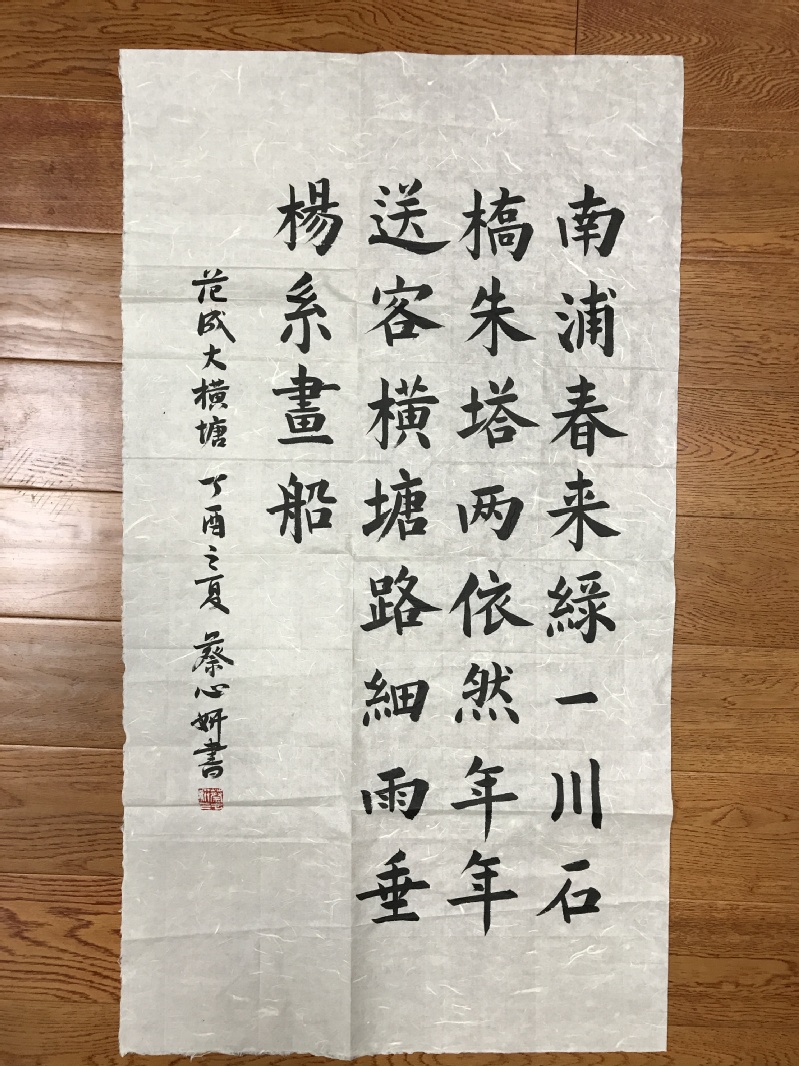 南浦春来緑一川石
橋朱塔两依然年年
送客横塘路細雨垂
楊系畫船
范成大横塘 丁酉之夏 蔡心妍書